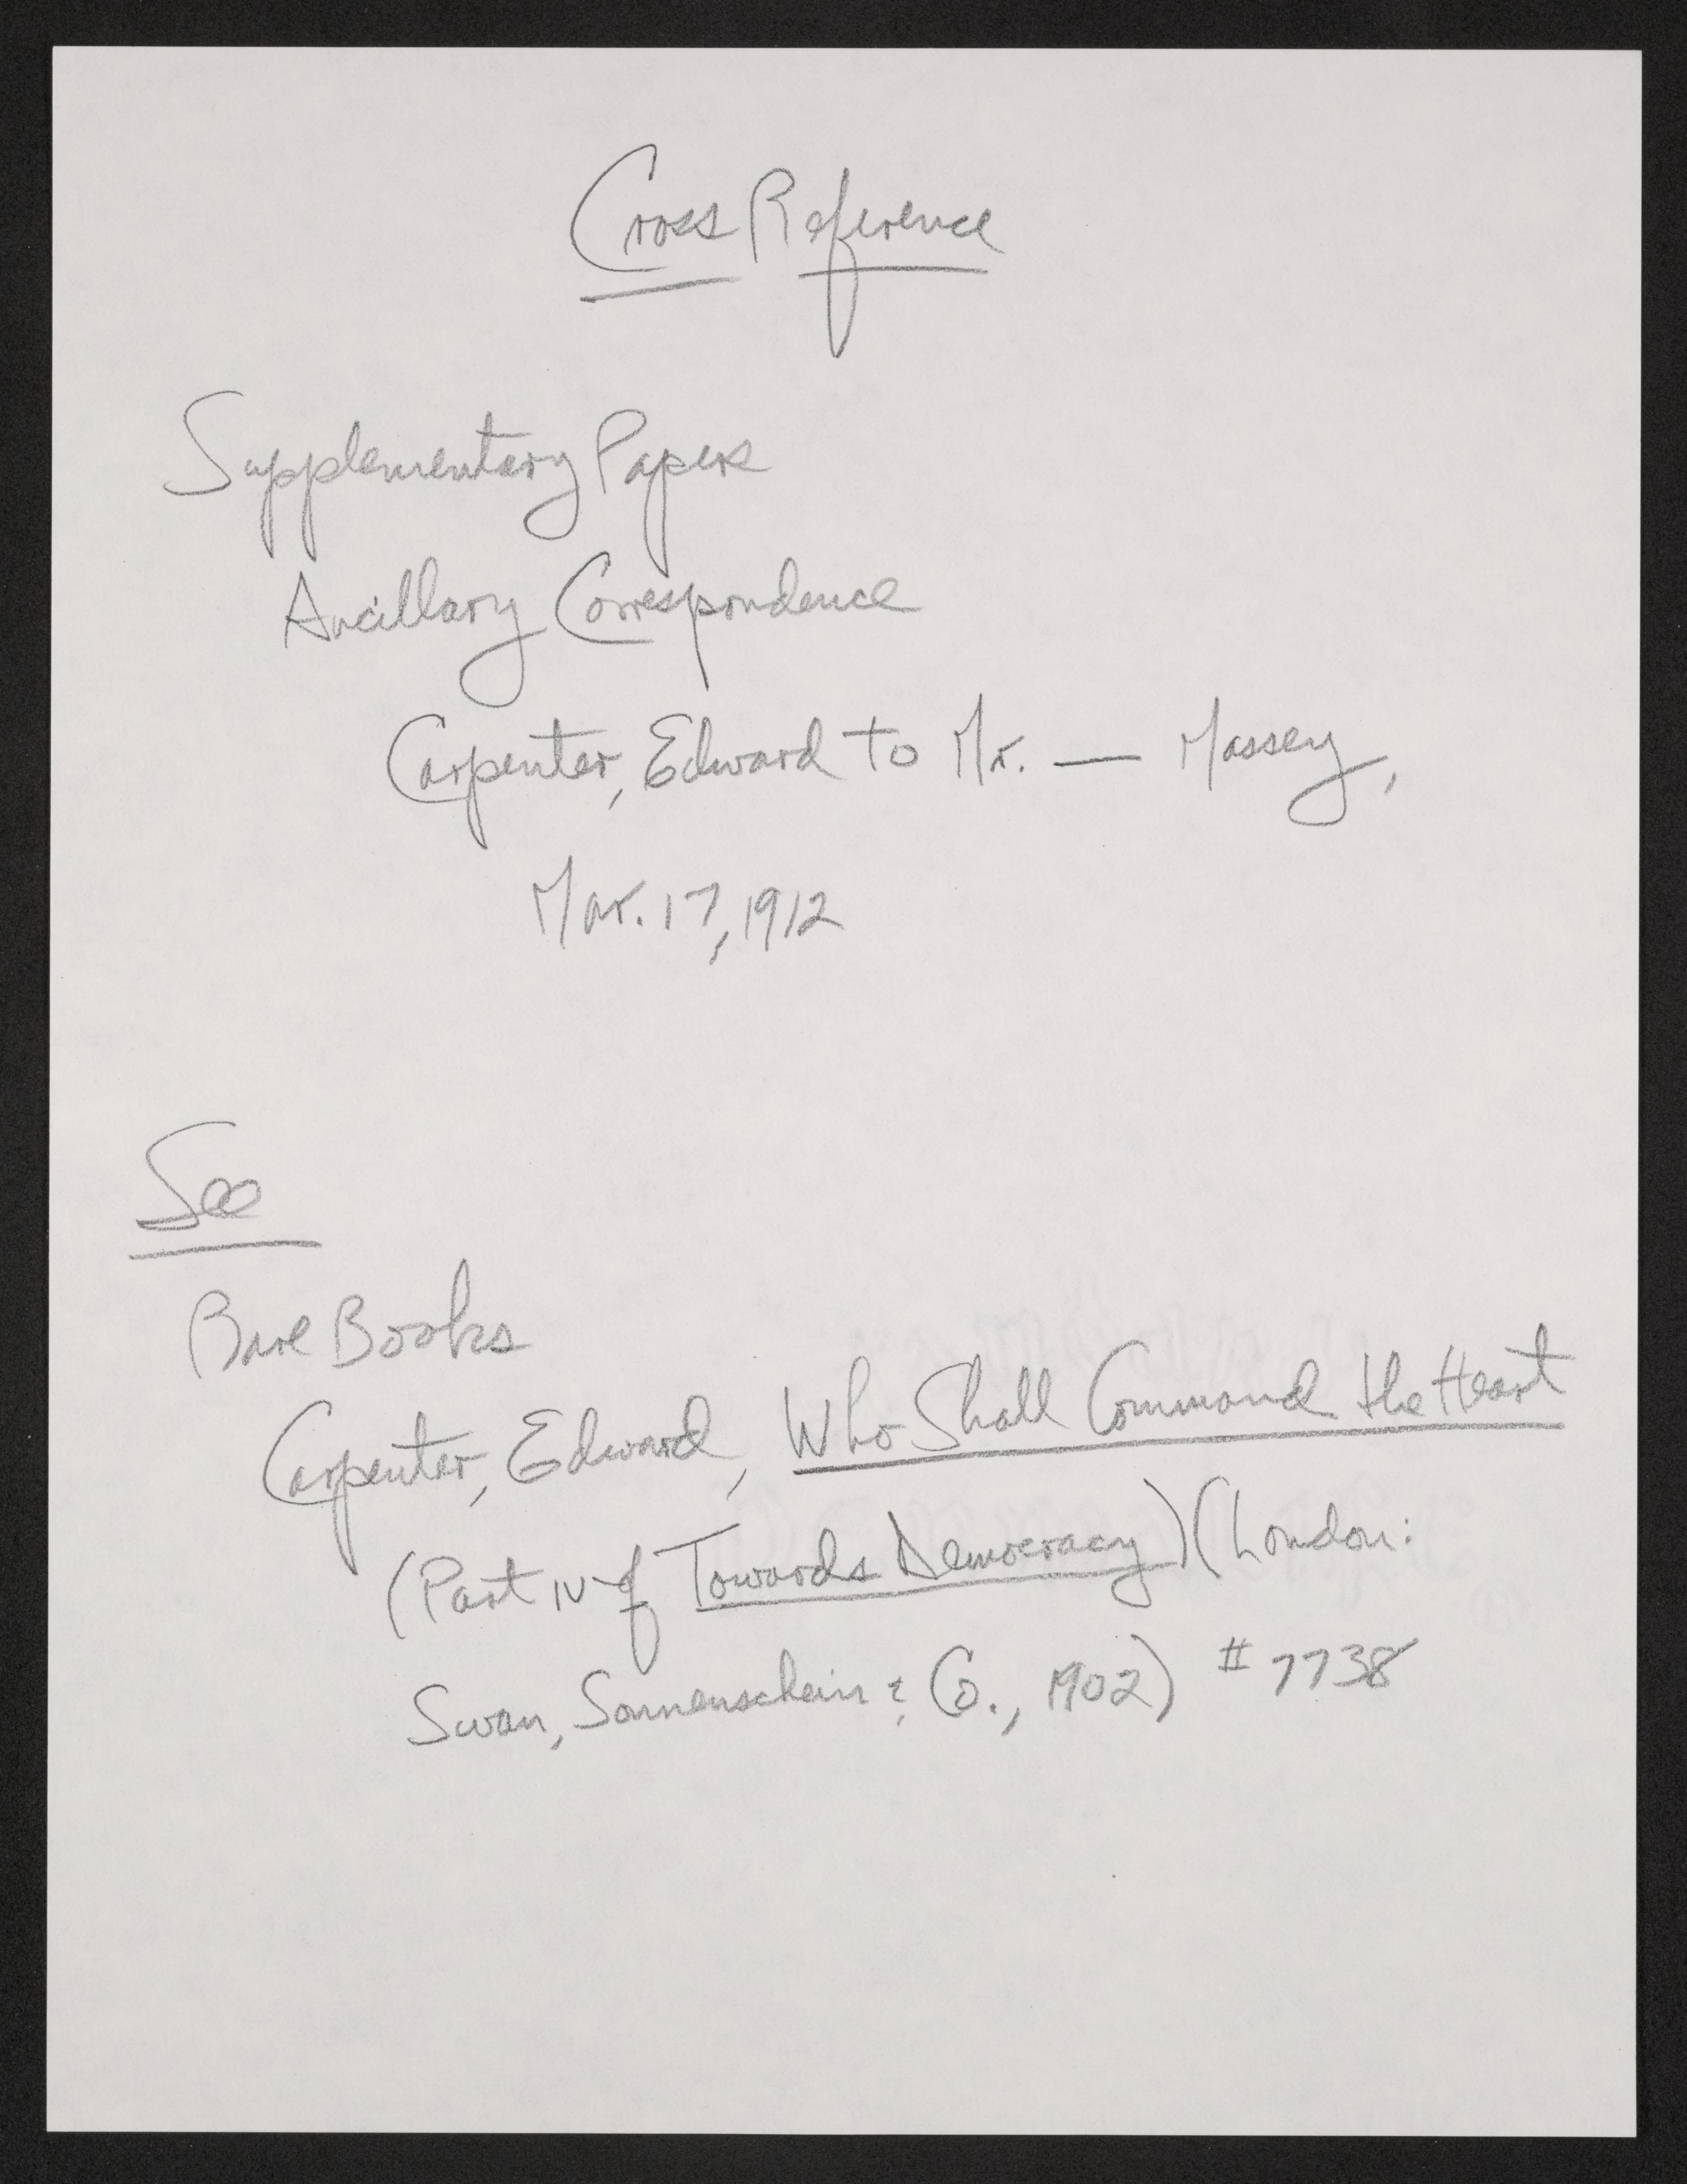 Cross Reference
Supplementary Papers
Ancillary Correspondence
Carpenter, Edward to Mr. — Massey,
Mar. 17, 1912
See
Rare Books
Carpenter, Edward, Who Shall Command the Heart
(Part IV of Towards Democracy) (London:
Swan, Sonnenschein & Co., 1902) # 7738